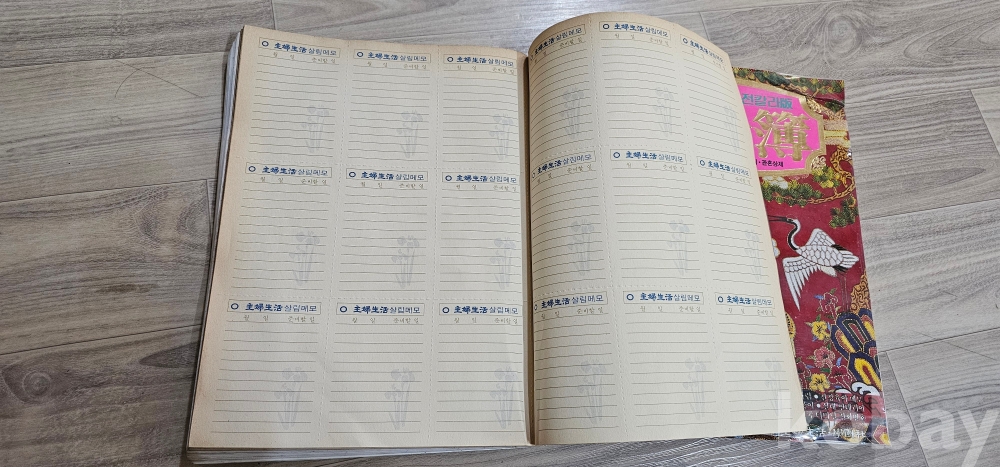 主婦生活 살림메모
월 일 준비할 일
主婦生活 살림메모
월 일 준비할 일
主婦生活 살림메모
월 일 준비할 일
主婦生活 살림메모
월 일 준비할 일
主婦生活 살림메모
월 일 준비할 일
主婦生活 살림메모
월 일 준비할 일
主婦生活 살림메모
월 일 준비할 일
主婦生活 살림메모
월 일 준비할 일
主婦生活 살림메모
월 일 준비할 일
主婦生活 살림메모
월 일 준비할 일
主婦生活 살림메모
월 일 준비할 일
主婦生活 살림메모
월 일 준비할 일
主婦生活 살림메모
월 일 준비할 일
主婦生活 살림메모
월 일 준비할 일
主婦生活 살림메모
월 일 준비할 일
主婦生活 살림메모
월 일 준비할 일
主婦生活 살림메모
월 일 준비할 일
主婦生活 살림메모
월 일 준비할 일
簿
관혼상제
kobay